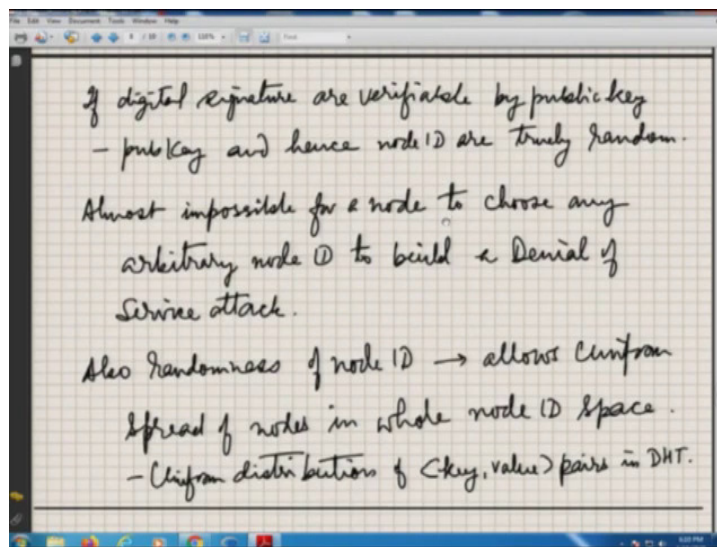 File Edit View Document Tools Window Help
If digital signature are verifiable by public key
- pub key and hence node ID are truely random.
Almost impossible for a node to choose any
arbitrary node ID to build a Denial of
Service attack.
Also randomness of node ID → allows Uniform
spread of nodes in whole node ID space.
- Uniform distributions of <key, value> pairs in DHT.